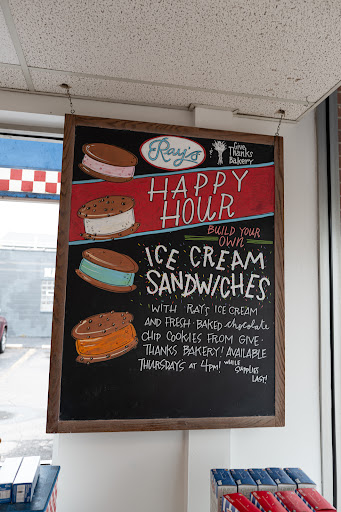 Ray's
Give
Thanks
Bakery
HAPPY
HOUR
BUILD YOUR
OWN
ICE CREAM
SANDWICHES
WITH RAY'S ICE CREAM
AND FRESH-BAKED chocolate
CHIP COOKIES FROM GIVE
THANKS BAKERY! AVAILABLE
THURSDAYS AT 4PM! WHILE
SUPPLIES
LAST!